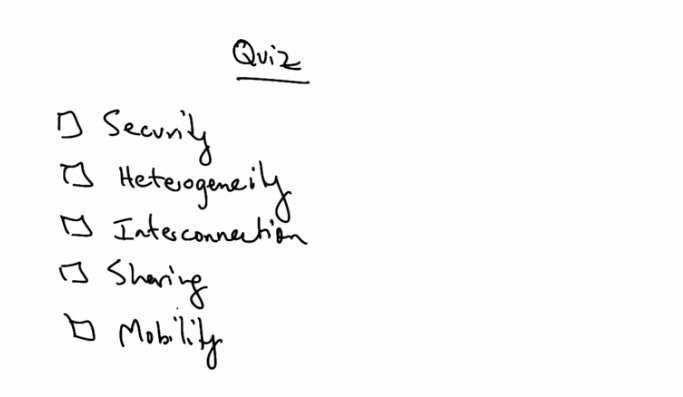 Quiz
Security
Heterogeneity
Interconnection
Sharing
Mobility